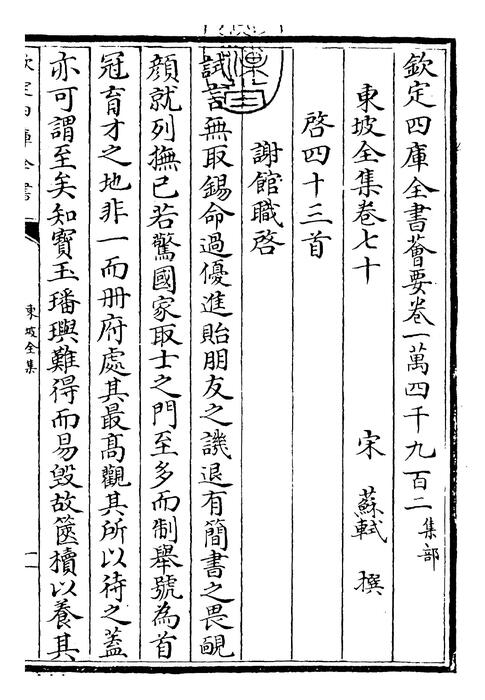 欽定四庫全書薈要卷一萬四千九百二 集部
東坡全集卷七十
宋 蘇軾 撰
啓四十三首
謝館職啓
試言無取錫命過優進貽朋友之譏退有簡書之畏靦
顔就列撫己若驚國家取士之門至多而制舉號為首
冠育才之地非一而冊府處其最髙觀其所以待之蓋
亦可謂至矣知寳玉璠璵難得而易毁故篋櫝以養其
欽定四庫全書
東坡全集
一